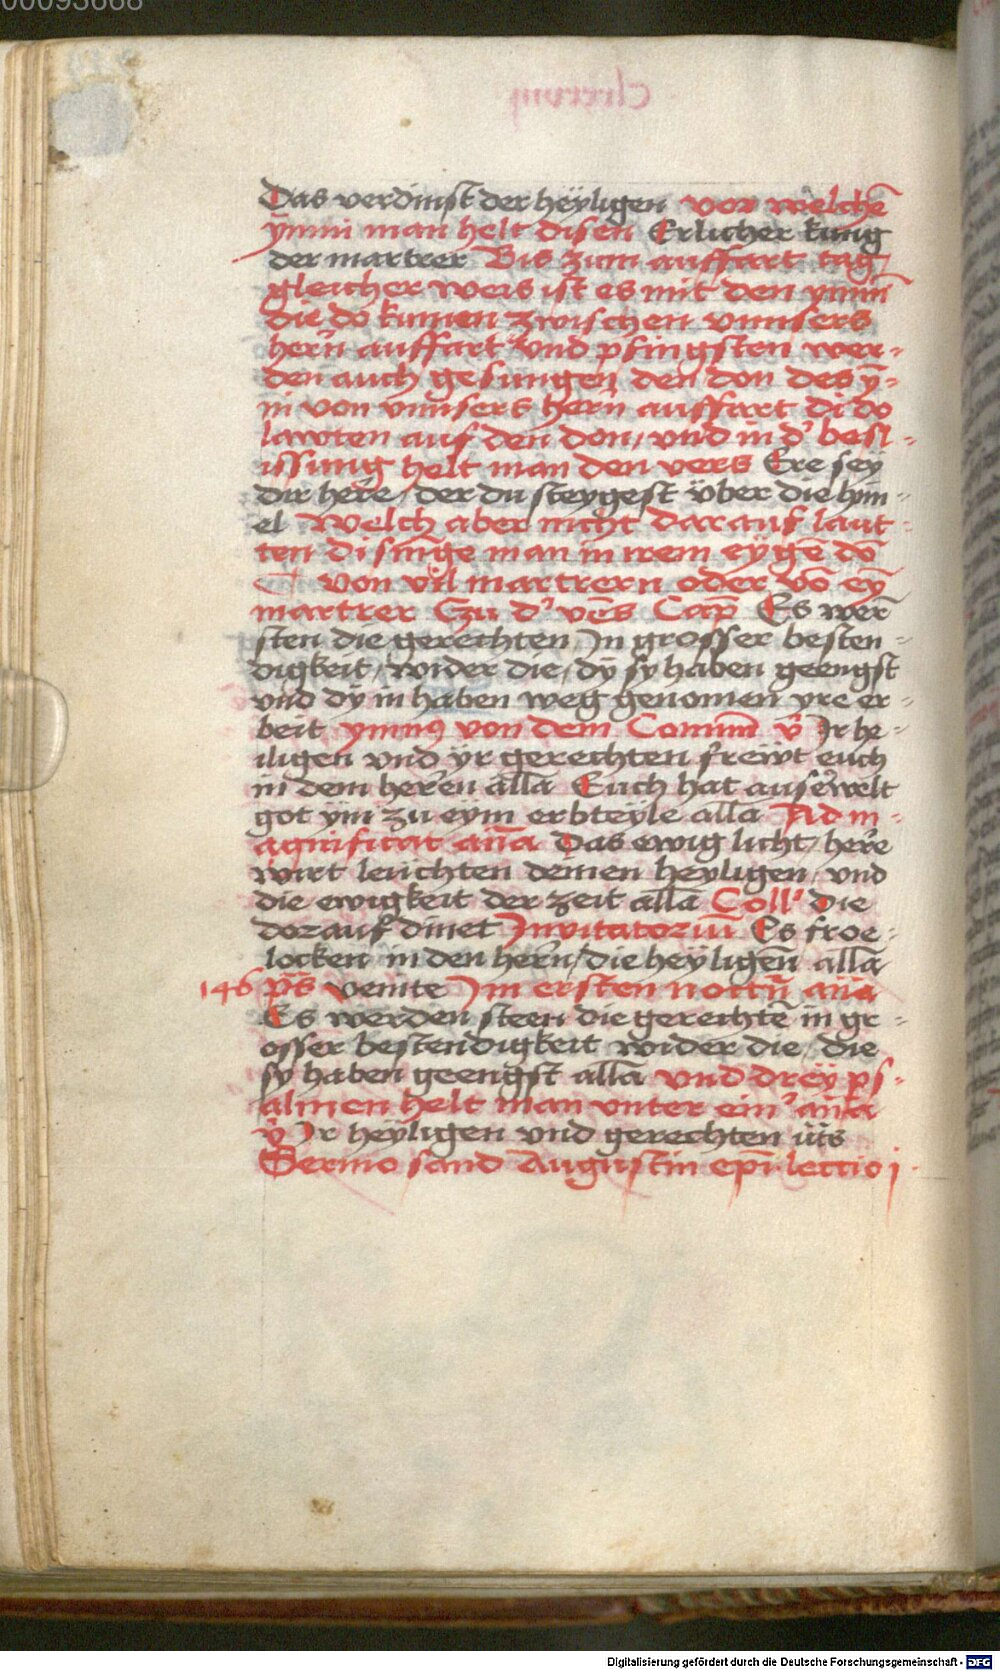 Das verdinst der heÿligen von welchē
ÿmni man helt disen Erlicher kung
der martrer Bis zum auffart tag
gleicher weis ist es mit den ymni
die do kumen zwischen vnnsers
hern auffart vnd pfingsten wer-
den auch gesungen den don des ÿ-
ni von vnnsers hern auffart di do
lawten auf den don, vnd in d' besl-
issung helt man den vers Ere sey
dir here, der du steygest über die hym-
el Welch aber nicht darauf laut-
ten di singe man in irem eÿgē dō
von vil martrern oder vō eÿ
martrer Czu d' ves Cap Es wer-
sten die gerechten In grosser besten-
digkeit, wider die, dÿ sy haben geengst
vnd dÿ in haben weg genomen yre er-
beit ymnus von dem Comm v̄ Ir he-
iligen vnd ÿr gerechten freẅt euch
in dem heren alla Euch hat auserwelt
got ÿm zu eym erbteÿle alla Ad m-
agnificat ana Das ewig licht, here
wirt leuchten deinen heyligen, vnd
die ewigkeit der zeit alla Coll' die
dorauf dinet Invitatoriū Es froe-
locken in den hern, die heÿligen alla
146 ps venite Im ersten noctū ana
Es werden steen die gerechtē in gr-
osser bestendigkeit wider die, die
sy haben geengst alla vnd dreÿ ps-
almen helt man vnter ein' ana
v̄ Ir heÿligen vnd gerechten üts
Sermo sand Augustin epi lectio j
Digitalisierung gefördert durch die Deutsche Forschungsgemeinschaft - DFG